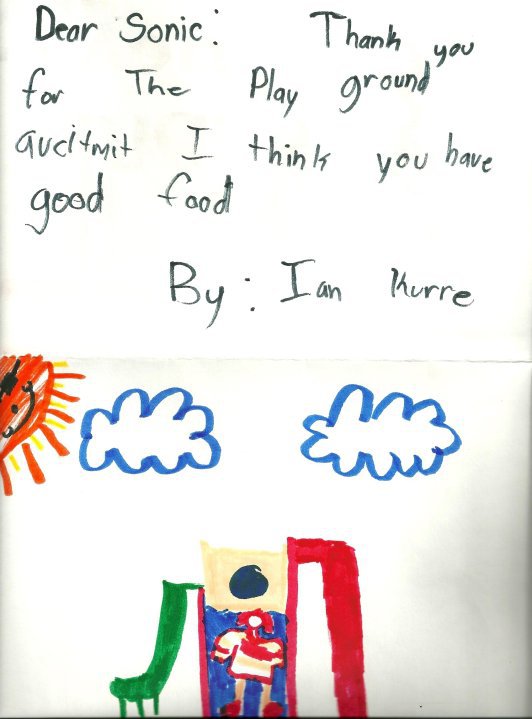 Dear Sonic: Thank you
for The Play ground
aucitmit I think you have
good food
By: Ian Kurre